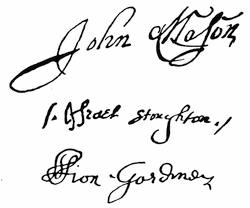 John Mason
Israel Stoughton
Lion Gardiner